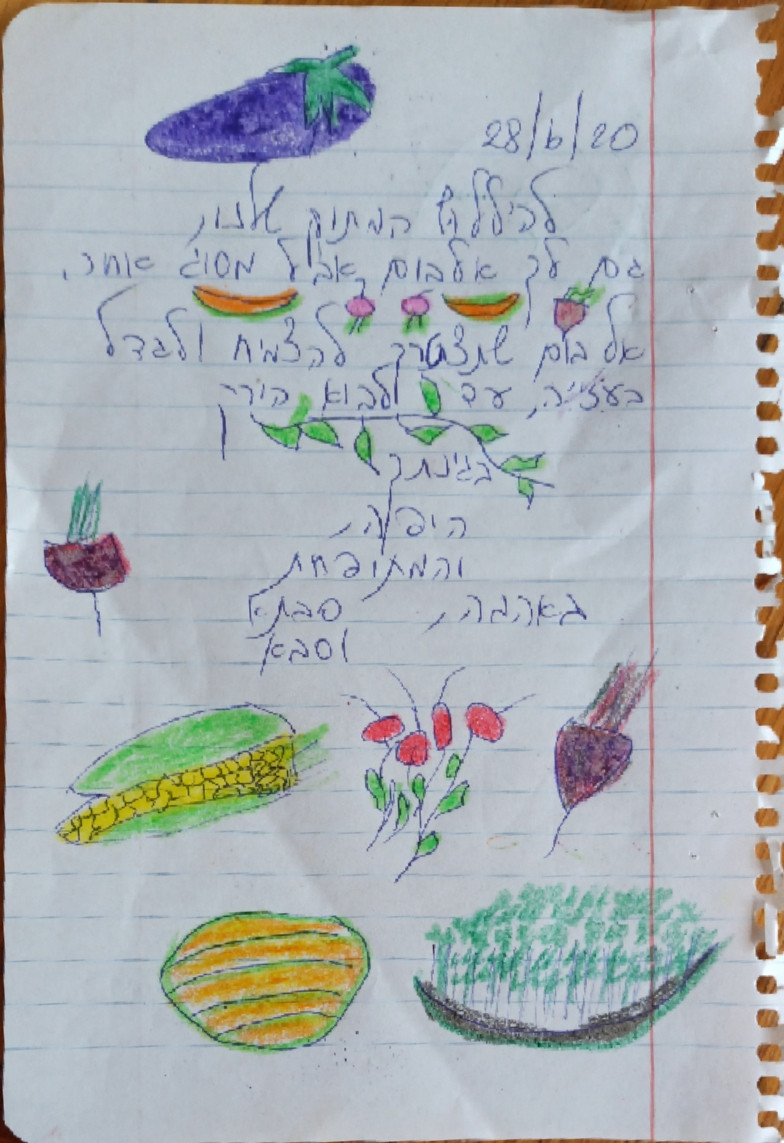 28/6/20
המתוק שלנו,
גם לך אלבום, אביל מסוג אחר.
אלבום שתצטרך להצמיח ולגדל
בעציה, עד ולבוא
בגינתך
היפה,
והמתופחת
באהבה, סבתא
וסבא